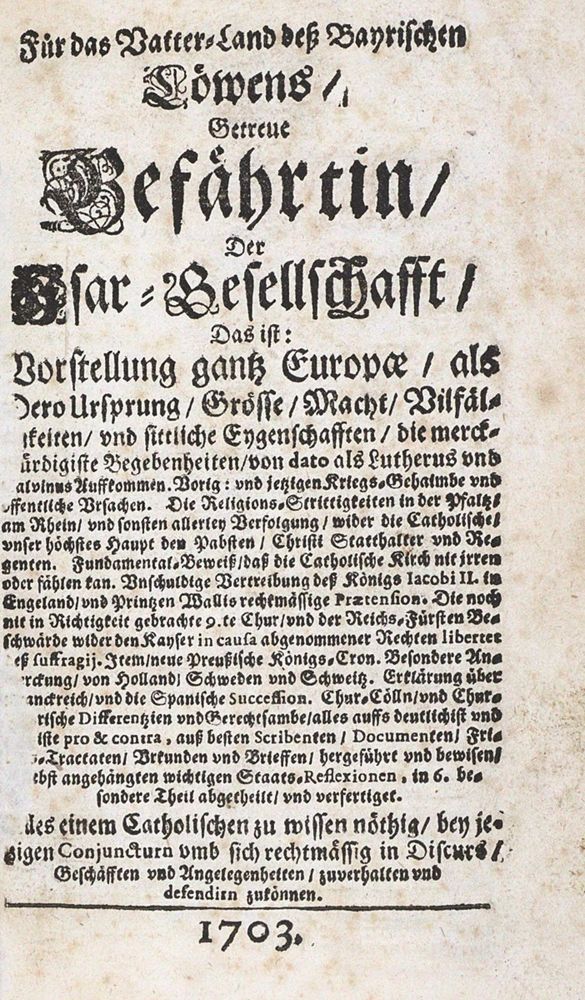 Für das Vatter-Land deß Bayrischen
Löwens /
Getreue
Gefährtin /
Der
Isar-Gesellschafft /
Das ist:
Vorstellung gantz Europæ / als
Dero Ursprung / Grösse / Macht / Vilfäl-
gkeiten / vnd sittliche Eygenschafften / die merck-
ürdigiste Begebenheiten / von dato als Lutherus vnd
alvinus Auffkommen. Vorig: vnd jetzigen Kriegs-Gehaimbe vnd
öffentliche Vrsachen. Die Religions-Strittigkeiten in der Pfaltz /
am Rhein / vnd sonsten allerley Verfolgung / wider die Catholische /
vnser höchstes Haupt den Pabsten / Christi Statthalter vnd Re-
genten. Fundamental-Beweiß / daß die Catholische Kirch nit irren
oder fählen kan. Vnschuldige Vertreibung deß Königs Iacobi II. in
Engeland / vnd Printzen Wallis rechtmässige Prætension. Die noch
nit in Richtigkeit gebrachte 9.te Chur / vnd der Reichs-Fürsten Be-
schwärde wider den Kayser in causa abgenommener Rechten libertet
eß suffragij. Item / neue Preußische Königs-Cron. Besondere An-
rckung / von Holland / Schweden vnd Schweitz. Erklärung über
anckreich / vnd die Spanische Succession. Chur-Cölln / vnd Chur-
rische Differentzien vnd Gerechtsambe / alles auffs deutlichist vnd
iste pro & contra, auß besten Scribenten / Documenten / Fri-
s-Tractaten / Vrkunden vnd Brieffen / hergeführt vnd bewisen /
ebst angehängten wichtigen Staats-Reflexionen, in 6. be-
sondere Theil abgetheilt / vnd verfertiget.
lles einem Catholischen zu wissen nöthig / bey je-
zigen Conjuncturn vmb sich rechtmässig in Discurs /
Geschäfften vnd Angelegenheiten / zuverhalten vnd
defendirn zukönnen.
1703.